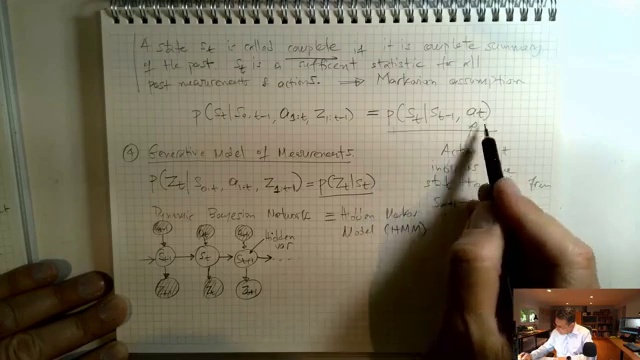 A state St is called complete if it is complete summary
of the past St is a sufficient statistic for all
past measurements & actions. ⟹ Markovian assumption
p(St|S0:t-1, a1:t, Z1:t-1) = p(St|St-1, at)
④ Generative Model of Measurements
p(Zt|S0:t, a1:t, Z1:t-1) = p(Zt|St)
Dynamic Bayesian Network ≡ Hidden Markov
Model (HMM)
Hidden
var
St-1 → St → St+1 → ...
Zt-1 Zt Zt+1
from